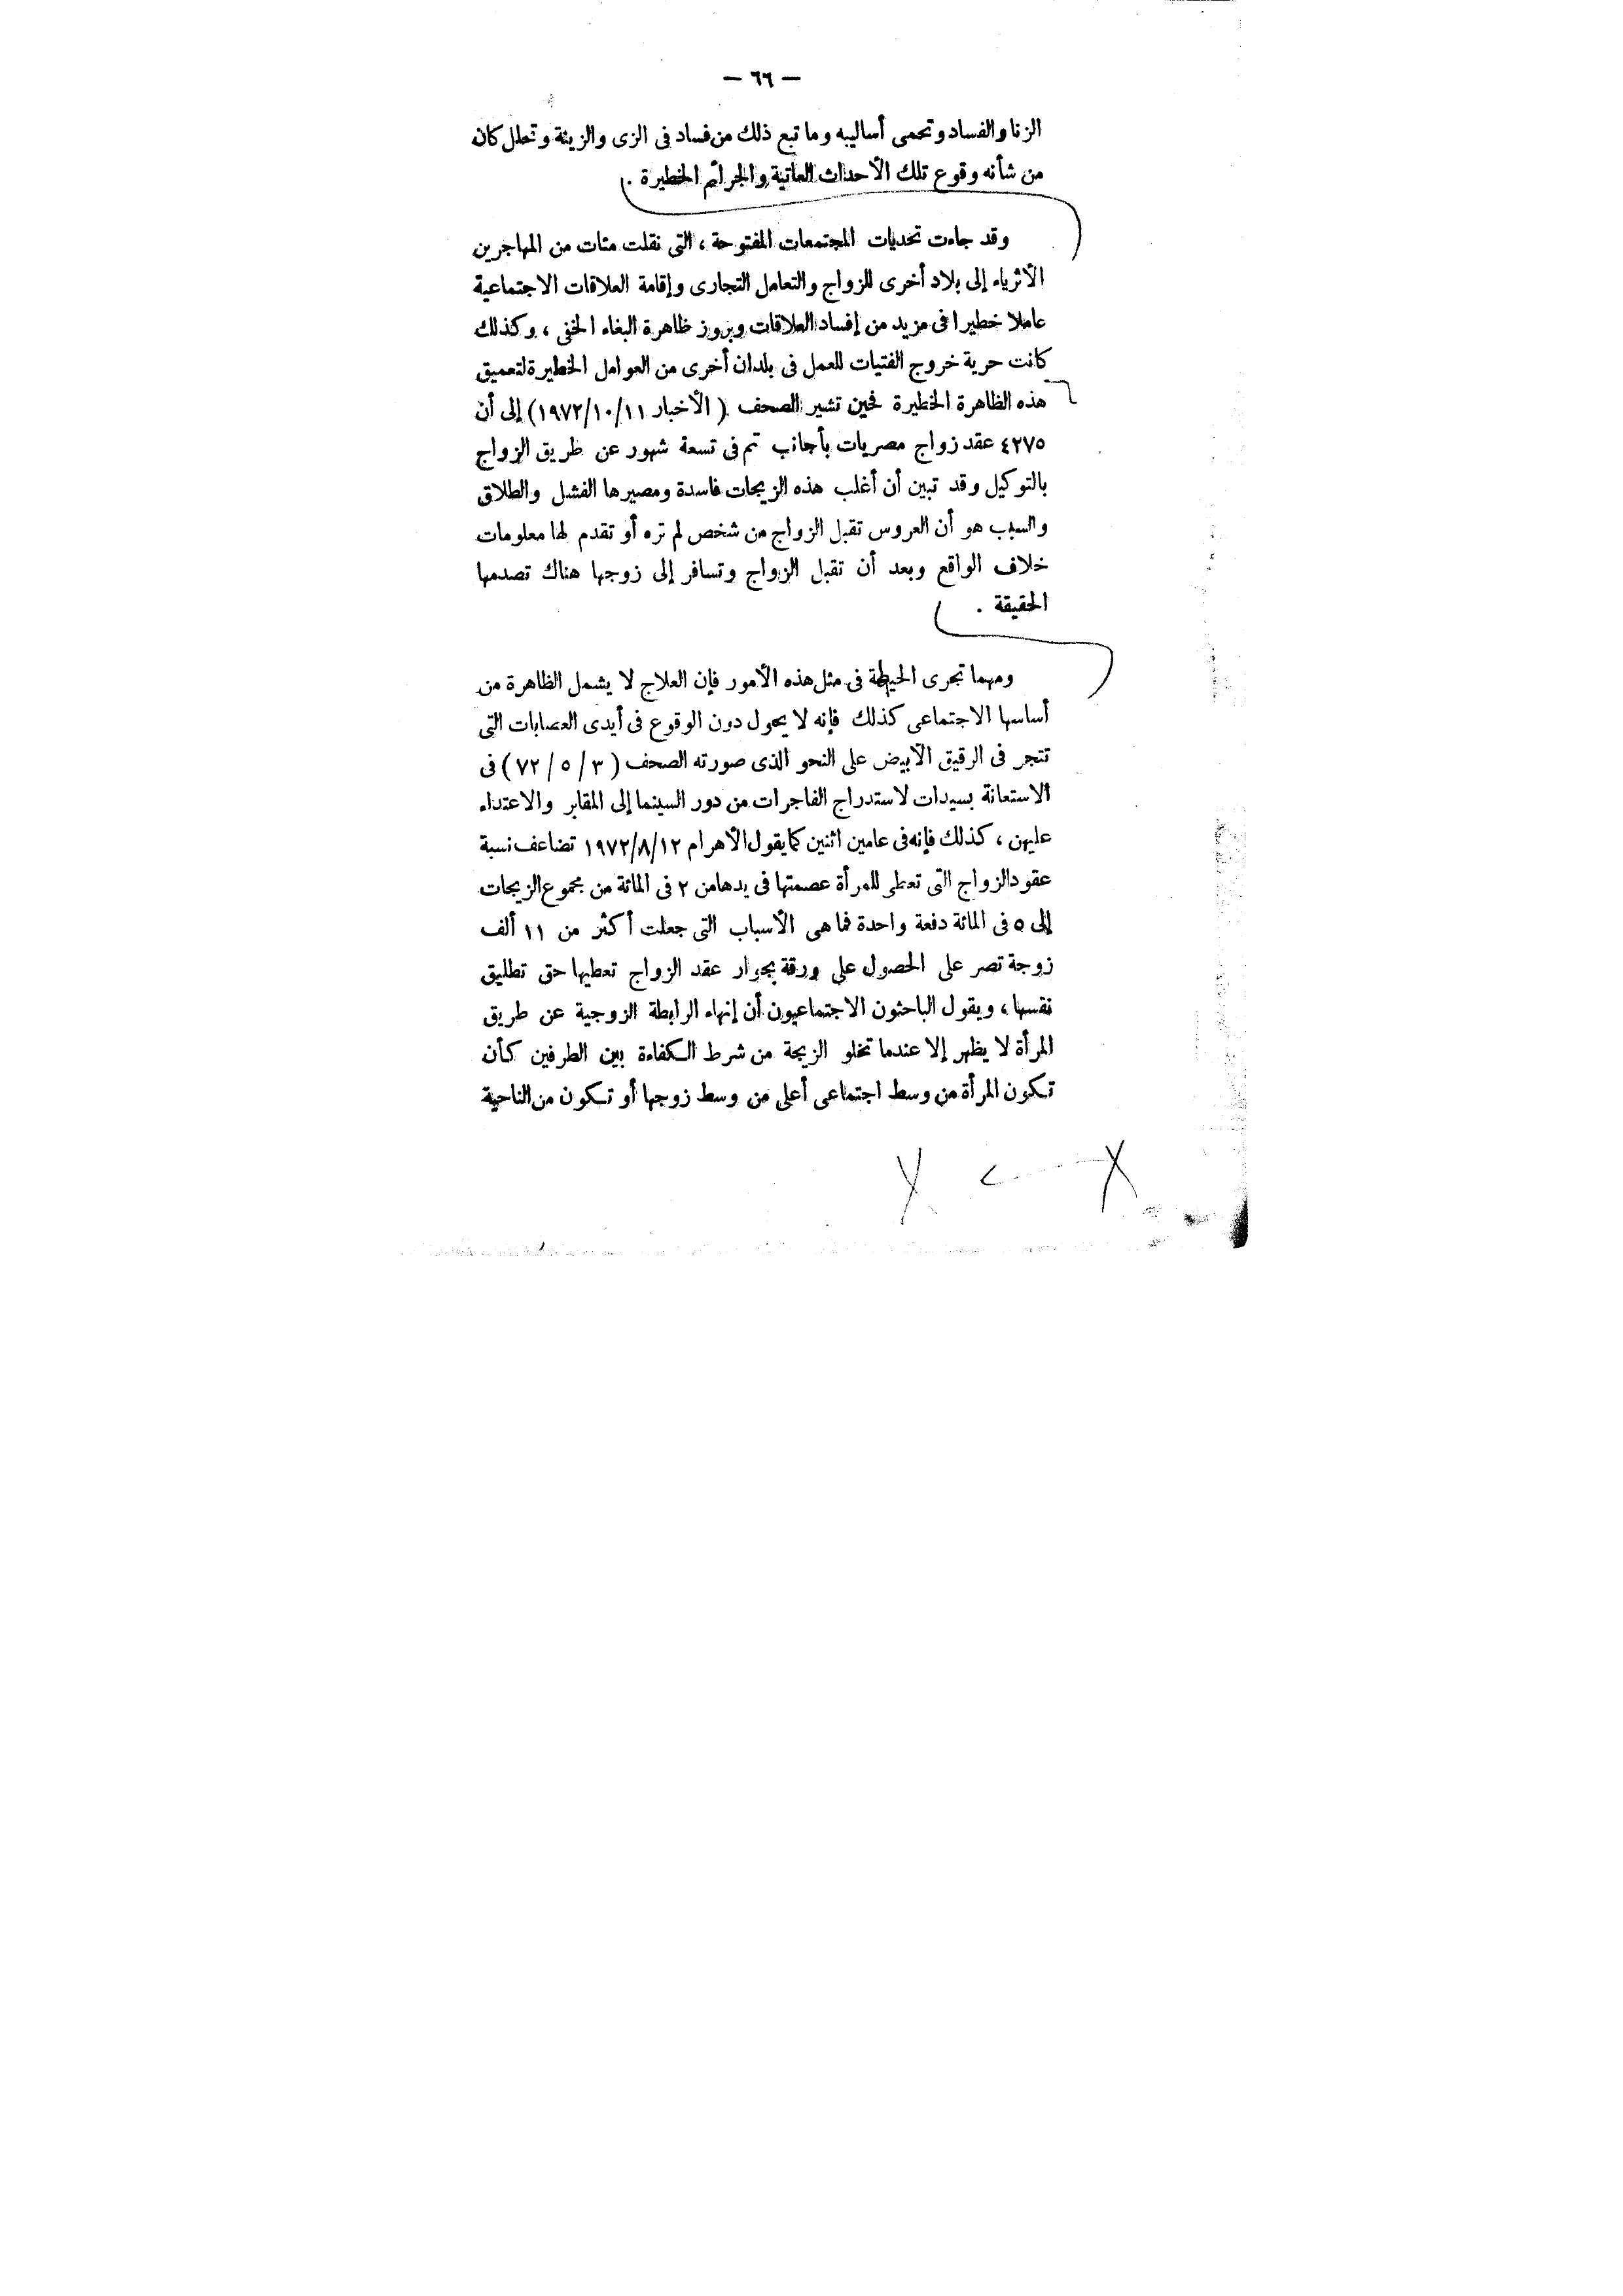 — ٦٦ —
الزنا والفساد وتحمى أساليبه وما تبع ذلك من فساد فى الزى والزينة وتحلل كان
من شأنه وقوع تلك الأحداث العاتية والجرائم الخطيرة .
وقد جاءت تحديات المجتمعات المفتوحة ، التى نقلت مئات من المهاجرين
الأثرياء إلى بلاد أخرى للزواج والتعامل التجارى وإقامة العلاقات الاجتماعية
عاملا خطيرا فى مزيد من إفساد العلاقات وبروز ظاهرة البغاء الخفى ، وكذلك
كانت حرية خروج الفتيات للعمل فى بلدان أخرى من العوامل الخطيرة لتعميق
هذه الظاهرة الخطيرة فحين تشير الصحف ( الأخبار ١٩٧٢/١٠/١١ ) إلى أن
٤٢٧٥ عقد زواج مصريات بأجانب تم فى تسعة شهور عن طريق الزواج
بالتوكيل وقد تبين أن أغلب هذه الزيجات فاسدة ومصيرها الفشل والطلاق
والسبب هو أن العروس تقبل الزواج من شخص لم تره أو تقدم لها معلومات
خلاف الواقع وبعد أن تقبل الزواج وتسافر إلى زوجها هناك تصدمها
الحقيقة .
ومهما تجرى الحيطة فى مثل هذه الأمور فإن العلاج لا يشمل الظاهرة من
أساسها الاجتماعى كذلك فإنه لا يحول دون الوقوع فى أيدى العصابات التى
تتجر فى الرقيق الأبيض على النحو الذى صورته الصحف ( ٣ / ٥ / ٧٢ ) فى
الاستعانة بسيدات لاستدراج الفاجرات من دور السينما إلى المقابر والاعتداء
عليهن ، كذلك فإنه فى عامين اثنين كما يقول الأهرام ١٩٧٢/٨/١٢ تضاعف نسبة
عقود الزواج التى تعطى للمرأة عصمتها فى يدها من ٢ فى المائة من مجموع الزيجات
إلى ٥ فى المائة دفعة واحدة فما هى الأسباب التى جعلت أكثر من ١١ ألف
زوجة تصر على الحصول على ورقة بجوار عقد الزواج تعطيها حق تطليق
نفسها ، ويقول الباحثون الاجتماعيون أن إنهاء الرابطة الزوجية عن طريق
المرأة لا يظهر إلا عندما تخلو الزيجة من شرط الكفاءة بين الطرفين كأن
تكون المرأة من وسط اجتماعى أعلى من وسط زوجها أو تكون من الناحية